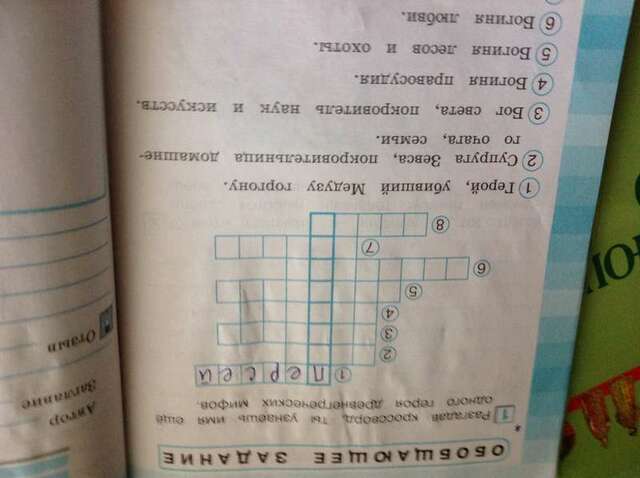 ОБОБЩАЮЩЕЕ ЗАДАНИЕ
* 1 Разгадав кроссворд, ты узнаешь имя ещё
одного героя древнегреческих мифов.
1 Персей
2
3
4
5
6
7
8
1 Герой, убивший Медузу горгону.
2 Супруга Зевса, покровительница домашне-
го очага, семьи.
3 Бог света, покровитель наук и искусств.
4 Богиня правосудия.
5 Богиня лесов и охоты.
6 Богиня любви.
Автор
Заглавие
Отзыв